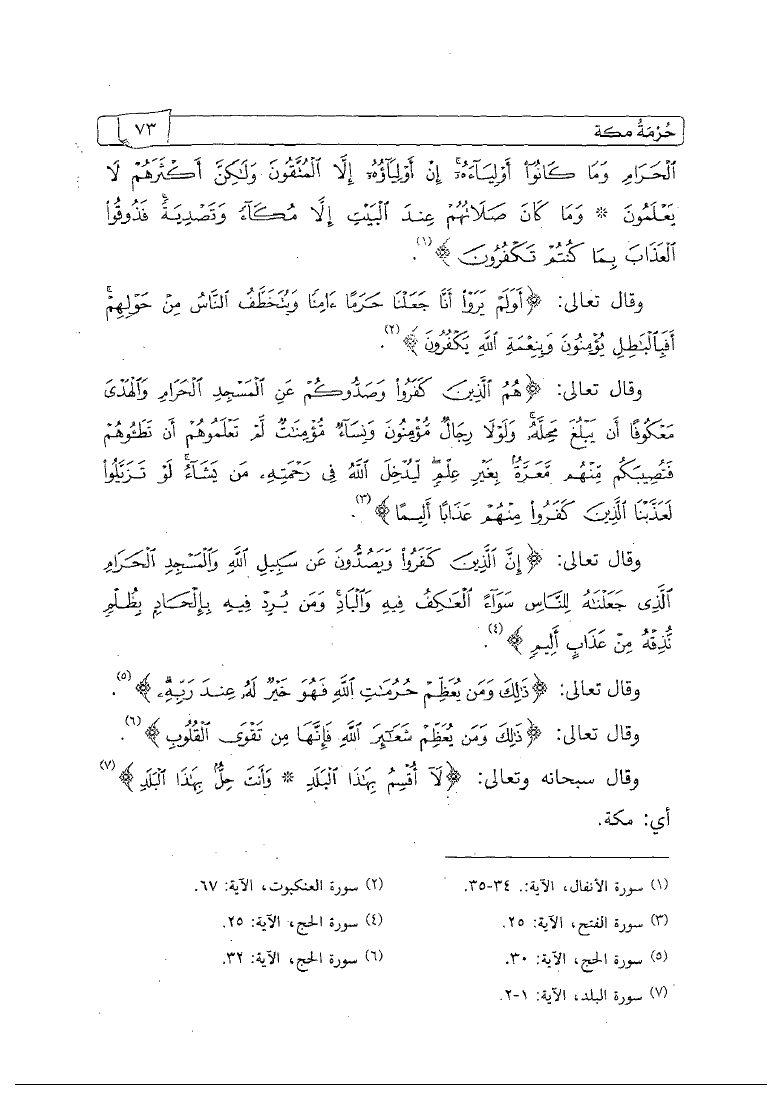 حُرْمَةُ مكة ٧٣
ٱلْحَرَامِ وَمَا كَانُوٓا۟ أَوْلِيَآءَهُۥٓ ۚ إِنْ أَوْلِيَآؤُهُۥٓ إِلَّا ٱلْمُتَّقُونَ وَلَٰكِنَّ أَكْثَرَهُمْ لَا
يَعْلَمُونَ * وَمَا كَانَ صَلَاتُهُمْ عِندَ ٱلْبَيْتِ إِلَّا مُكَآءً وَتَصْدِيَةً ۚ فَذُوقُوا۟
ٱلْعَذَابَ بِمَا كُنتُمْ تَكْفُرُونَ ﴾(١).
وقال تعالى: ﴿أَوَلَمْ يَرَوْا۟ أَنَّا جَعَلْنَا حَرَمًا ءَامِنًا وَيُتَخَطَّفُ ٱلنَّاسُ مِنْ حَوْلِهِمْ ۚ
أَفَبِٱلْبَٰطِلِ يُؤْمِنُونَ وَبِنِعْمَةِ ٱللَّهِ يَكْفُرُونَ ﴾(٢).
وقال تعالى: ﴿ هُمُ ٱلَّذِينَ كَفَرُوا۟ وَصَدُّوكُمْ عَنِ ٱلْمَسْجِدِ ٱلْحَرَامِ وَٱلْهَدْىَ
مَعْكُوفًا أَن يَبْلُغَ مَحِلَّهُۥ ۚ وَلَوْلَا رِجَالٌ مُّؤْمِنُونَ وَنِسَآءٌ مُّؤْمِنَٰتٌ لَّمْ تَعْلَمُوهُمْ أَن تَطَـُٔوهُمْ
فَتُصِيبَكُم مِّنْهُم مَّعَرَّةٌۢ بِغَيْرِ عِلْمٍ ۖ لِّيُدْخِلَ ٱللَّهُ فِى رَحْمَتِهِۦ مَن يَشَآءُ ۚ لَوْ تَزَيَّلُوا۟
لَعَذَّبْنَا ٱلَّذِينَ كَفَرُوا۟ مِنْهُمْ عَذَابًا أَلِيمًا ﴾(٣).
وقال تعالى: ﴿ إِنَّ ٱلَّذِينَ كَفَرُوا۟ وَيَصُدُّونَ عَن سَبِيلِ ٱللَّهِ وَٱلْمَسْجِدِ ٱلْحَرَامِ
ٱلَّذِى جَعَلْنَٰهُ لِلنَّاسِ سَوَآءً ٱلْعَٰكِفُ فِيهِ وَٱلْبَادِ ۚ وَمَن يُرِدْ فِيهِ بِإِلْحَادٍۭ بِظُلْمٍ
نُّذِقْهُ مِنْ عَذَابٍ أَلِيمٍ ﴾(٤).
وقال تعالى: ﴿ذَٰلِكَ وَمَن يُعَظِّمْ حُرُمَٰتِ ٱللَّهِ فَهُوَ خَيْرٌ لَّهُۥ عِندَ رَبِّهِۦ ۗ ﴾(٥).
وقال تعالى: ﴿ذَٰلِكَ وَمَن يُعَظِّمْ شَعَٰٓئِرَ ٱللَّهِ فَإِنَّهَا مِن تَقْوَى ٱلْقُلُوبِ ﴾(٦).
وقال سبحانه وتعالى: ﴿لَآ أُقْسِمُ بِهَٰذَا ٱلْبَلَدِ * وَأَنتَ حِلٌّۢ بِهَٰذَا ٱلْبَلَدِ ﴾(٧)
أي: مكة.
(١) سورة الأنفال، الآية:. ٣٤-٣٥.
(٢) سورة العنكبوت، الآية: ٦٧.
(٣) سورة الفتح، الآية: ٢٥.
(٤) سورة الحج، الآية: ٢٥.
(٥) سورة الحج، الآية: ٣٠.
(٦) سورة الحج، الآية: ٣٢.
(٧) سورة البلد، الآية: ١-٢.